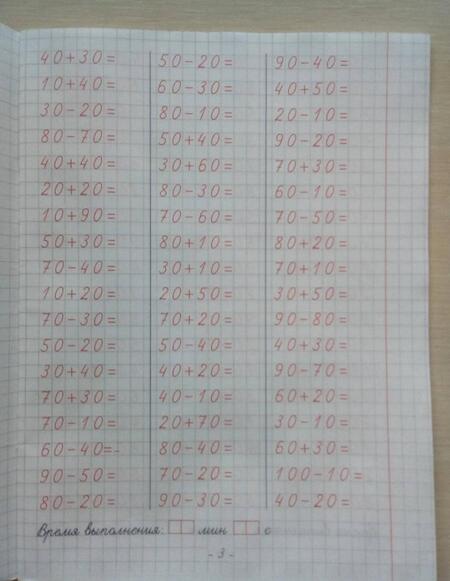 40+30= 50-20= 90-40=
10+40= 60-30= 40+50=
30-20= 80-10= 20-10=
80-70= 50+40= 90-20=
40+40= 30+60= 70+30=
20+20= 80-30= 60-10=
10+90= 70-60= 70-50=
50+30= 80+10= 80+20=
70-40= 30+10= 70+10=
10+20= 20+50= 30+50=
70-30= 70+20= 90-80=
50-20= 50-40= 40+30=
30+40= 40+20= 90-70=
70+30= 40-10= 60+20=
70-10= 20+70= 30-10=
60-40=- 80-40= 60+30=
90-50= 70-20= 100-10=
80-20= 90-30= 40-20=
Время выполнения: мин с
-3-